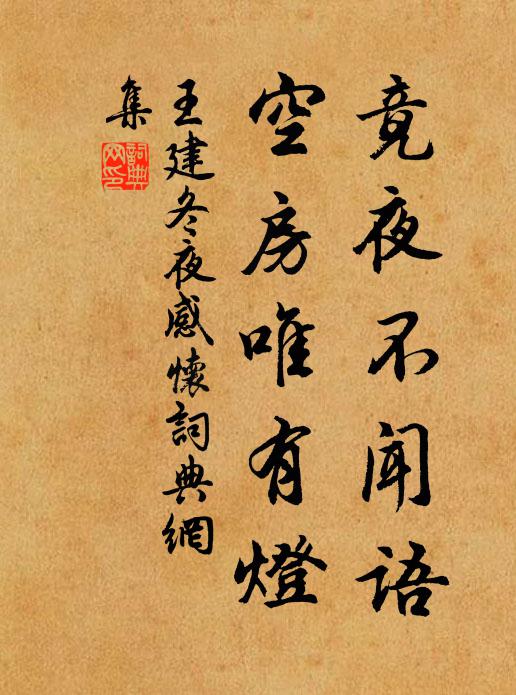 竟夜不聞語
空房唯有燈
王建冬夜感懷詞典網
集
詞典
网印